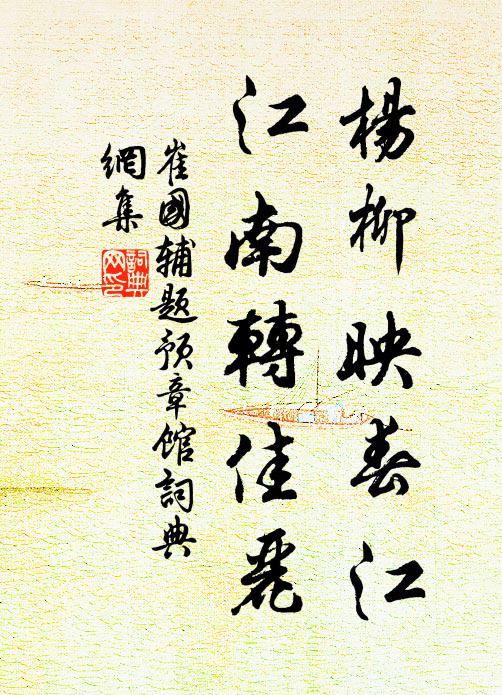 楊柳映春江
江南轉佳麗
崔國辅題预章馆詞典
網集
詞典
网印